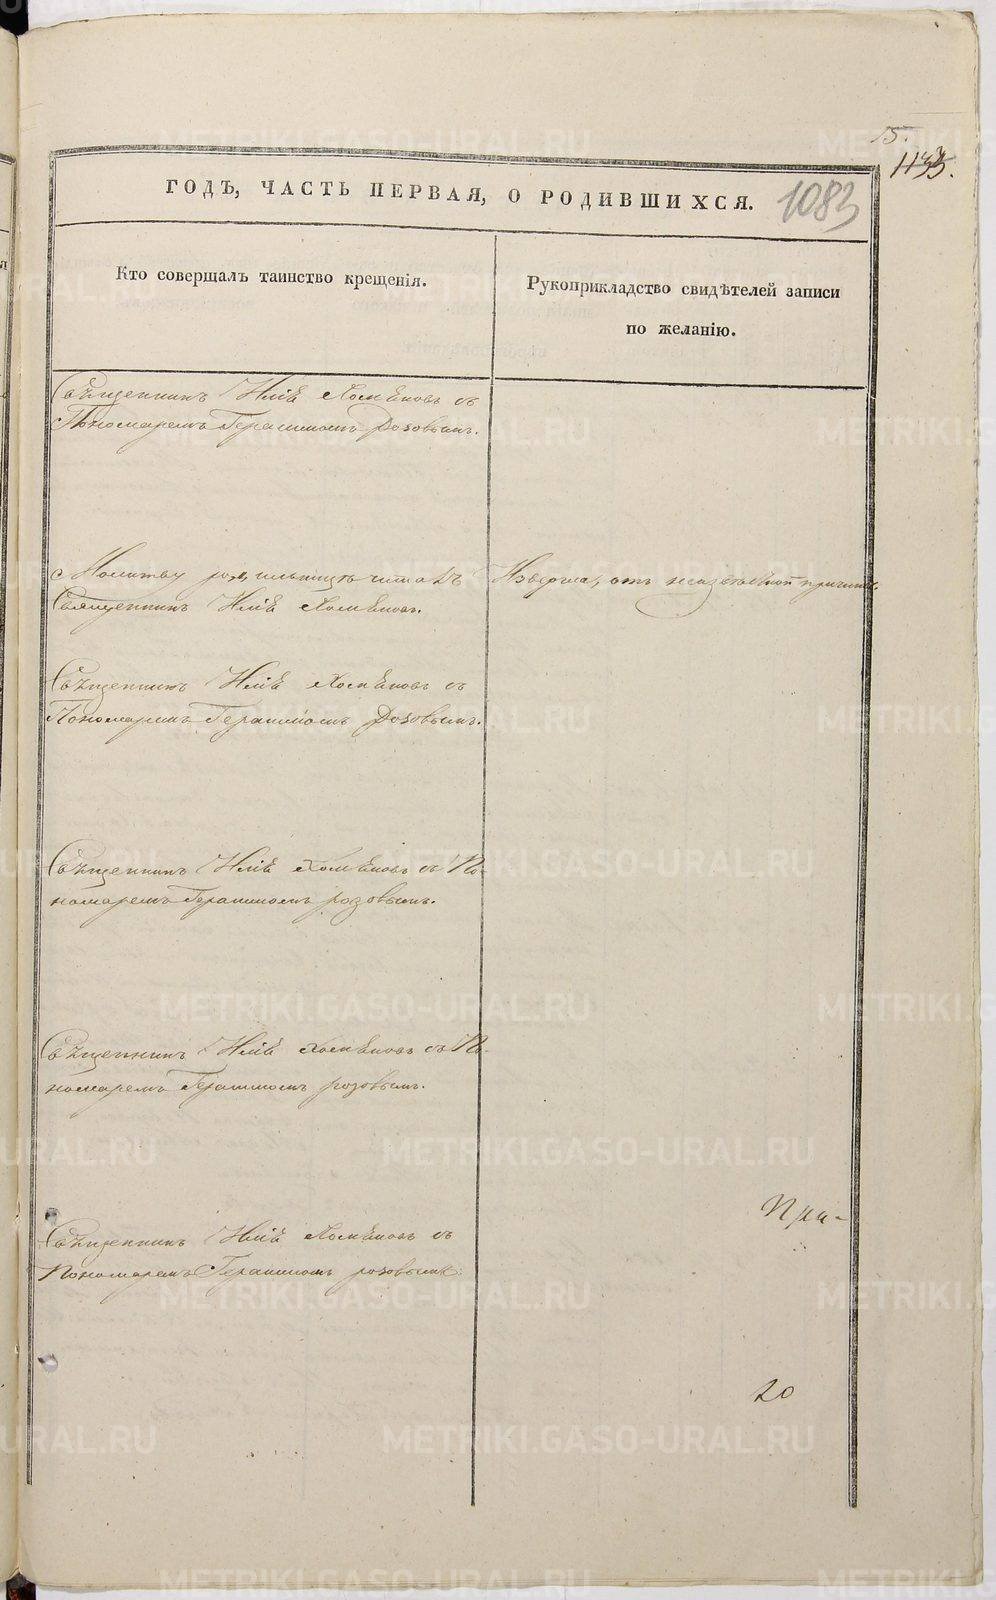 15.
1133.
ГОДЪ, ЧАСТЬ ПЕРВАЯ, О РОДИВШИХСЯ.
1083
Кто совершалъ таинство крещенія.
Рукоприкладство свидѣтелей записи
по желанію.
Священникъ Илія Хомѣновъ съ
Пономаремъ Герасимомъ Розовымъ.
Молитву родильницѣ читалъ
Священникъ Илія Хомѣновъ.
отъ причины.
Священникъ Илія Хомѣновъ съ
Пономаремъ Герасимомъ Розовымъ.
Священникъ Илія Хомѣновъ съ По-
номаремъ Герасимомъ розовымъ.
Священникъ Илія Хомѣновъ съ По-
номаремъ Герасимомъ розовымъ.
Священникъ Илія Хомѣновъ съ
Пономаремъ Герасимомъ розовымъ.
При-
20
METRIKI.GASO-URAL.RU